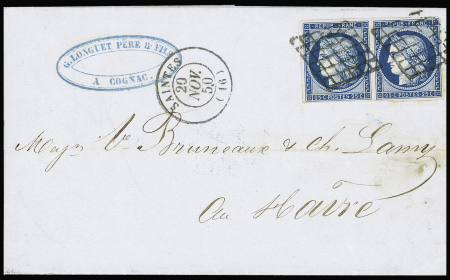 G. LONGUET PÈRE & FILS
A COGNAC.
SAINTES
29
NOV.
50
(16)
REPUB. FRANC.
REPUB. FRANC.
25 C. POSTES. 25 C.
25 C. POSTES. 25 C.
Ve Bruneaux & Ch. Lamy
Au Havre